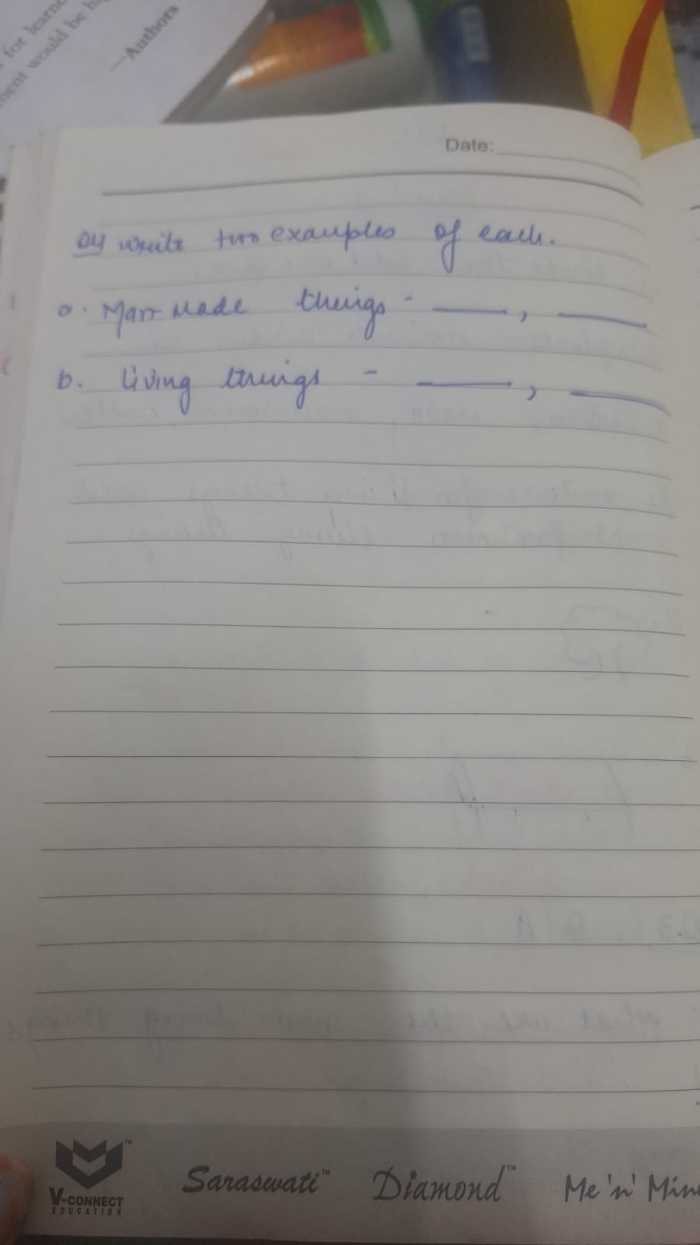 for learne
ment would be h
—Authors
Date:
Q4 write two examples of each.
a. Man Made things - ____, ____
b. living things - ____, ____
V-CONNECT
EDUCATION
Saraswati™
Diamond™
Me 'n' Mine